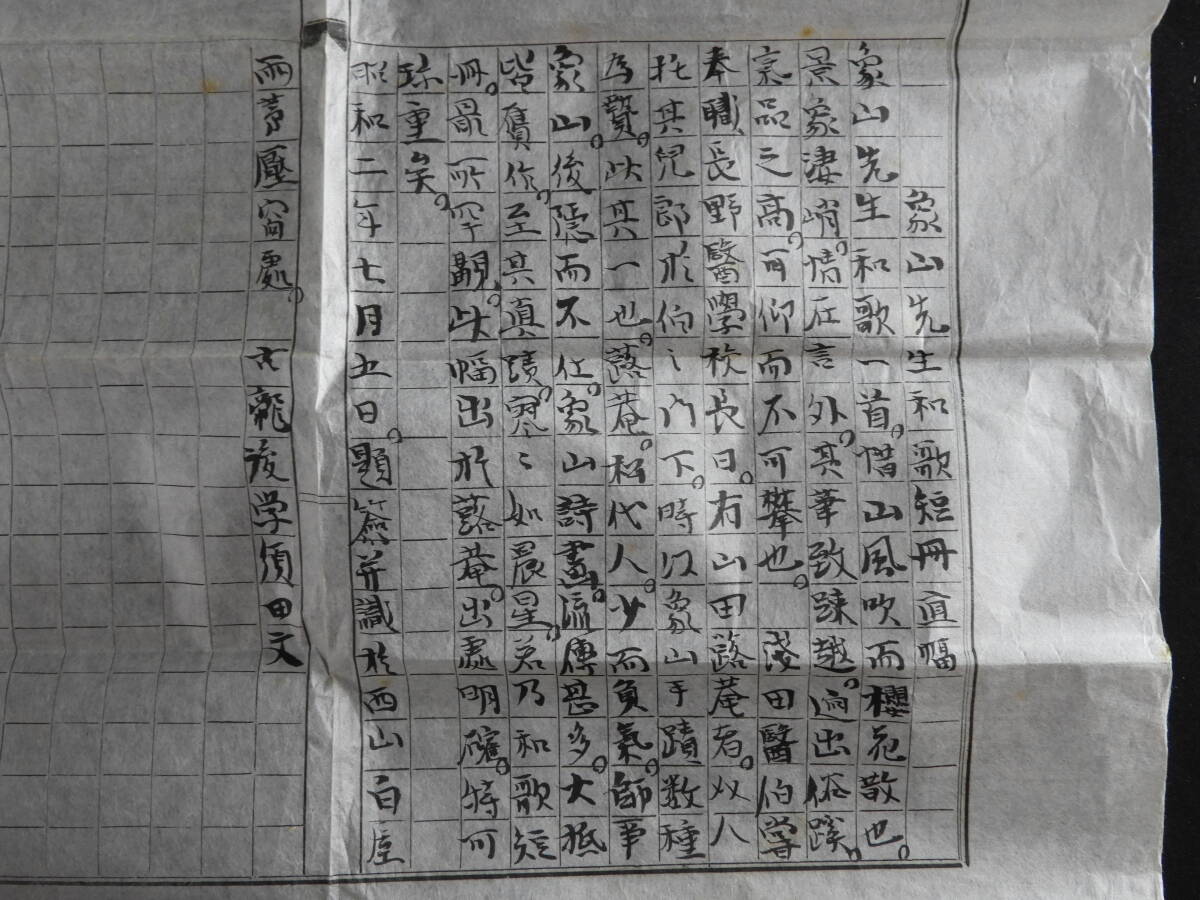 象山先生和歌短冊直幅
象山先生和歌一首。惜山風吹而櫻花散也。
景象凄峭。情在言外。其筆致疎越。逈出俗蹊。
気品之高。可仰而不可攀也。淺田醫伯嘗
奉職長野醫學校長日。有山田蕗菴者。以人
托其兒郎於伯之門下。時以象山手蹟数種
為贄。此其一也。蕗菴。松代人。少而負氣。師事
象山。後隠而不仕。象山詩畫。流傳甚多。大抵
皆贋作。至其真蹟。寥々如晨星。若乃和歌短
冊。最所罕覯。此幅出於蕗菴。出處明確。特可
珍重矣。
昭和二年七月五日。題簽并識於西山百厓
雨夢壓窗處。 古龍後学須田文